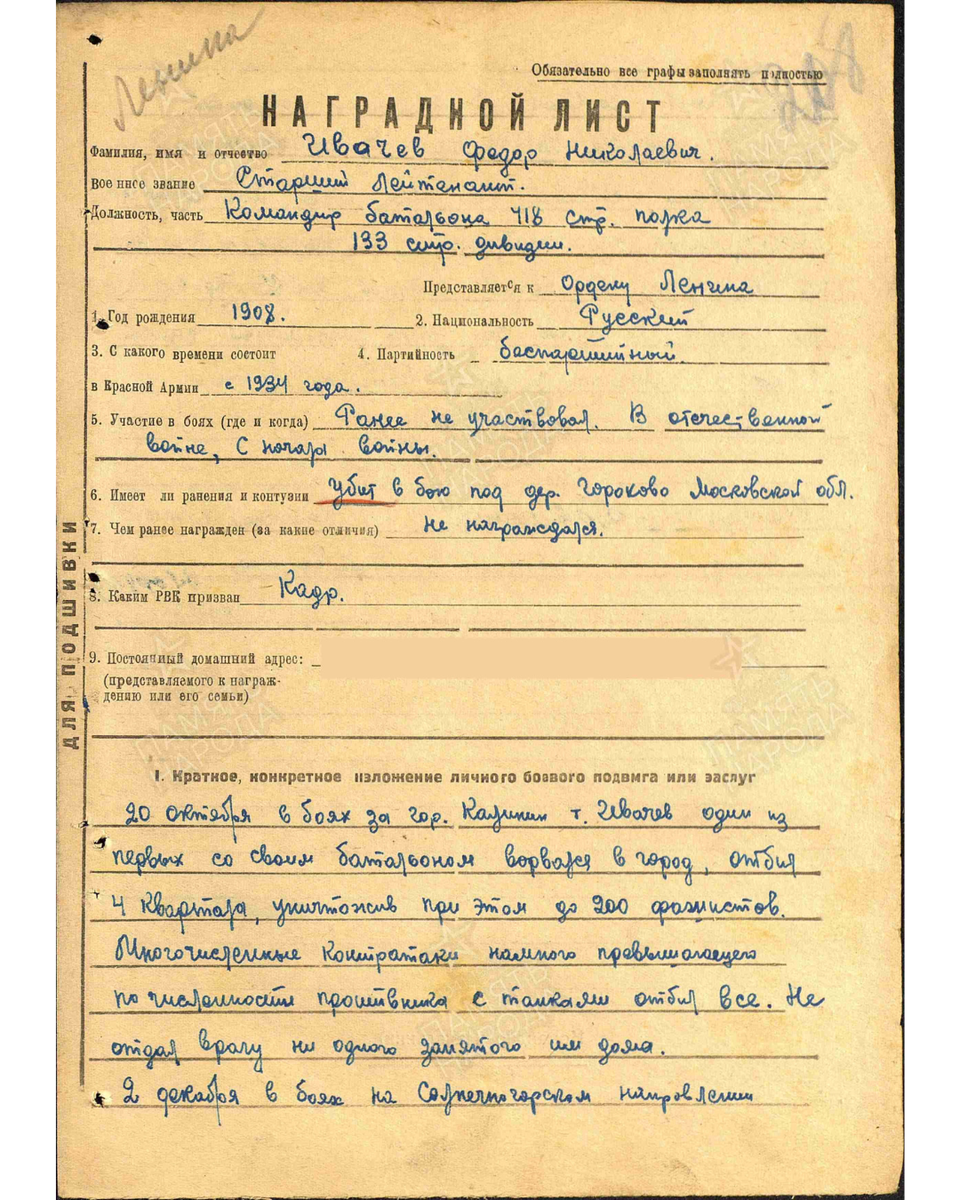 Ленина
Обязательно все графы заполнять полностью
НАГРАДНОЙ ЛИСТ
Фамилия, имя и отчество Ивачев Федор Николаевич.
Военнсе звание Старший Лейтенант.
Должность, часть Командир батальона 418 стр. полка
133 стр. дивизии.
Представляется к Ордену Ленина
1. Год рождения 1908. 2. Национальность Русский
3. С какого времени состоит 4. Партийность беспартийный.
в Красной Армии с 1934 года.
5. Участие в боях (где и когда) Ранее не участвовал. В отечественной
войне, С начала войны.
6. Имеет ли ранения и контузии убит в бою под дер. Гороково Московской обл.
7. Чем ранее награжден (за какие отличия) Не награждался.
8. Каким РВК призван Кадр.
9. Постоянный домашний адрес:
(представляемого к награж-
дению или его семьи)
ДЛЯ ПОДШИВКИ
I. Краткое, конкретное изложение личного боевого подвига или заслуг
20 октября в боях за гор. Калинин т. Ивачев один из
первых со своим батальоном ворвался в город, отбил
4 квартала, уничтожив при этом до 200 фашистов.
Многочисленные контратаки намного превышающего
по численности противника с танками отбил все. Не
отдал врагу ни одного занятого им дома.
2 декабря в боях на Солнечногорском направлении
ПАМЯТЬ НАРОДА